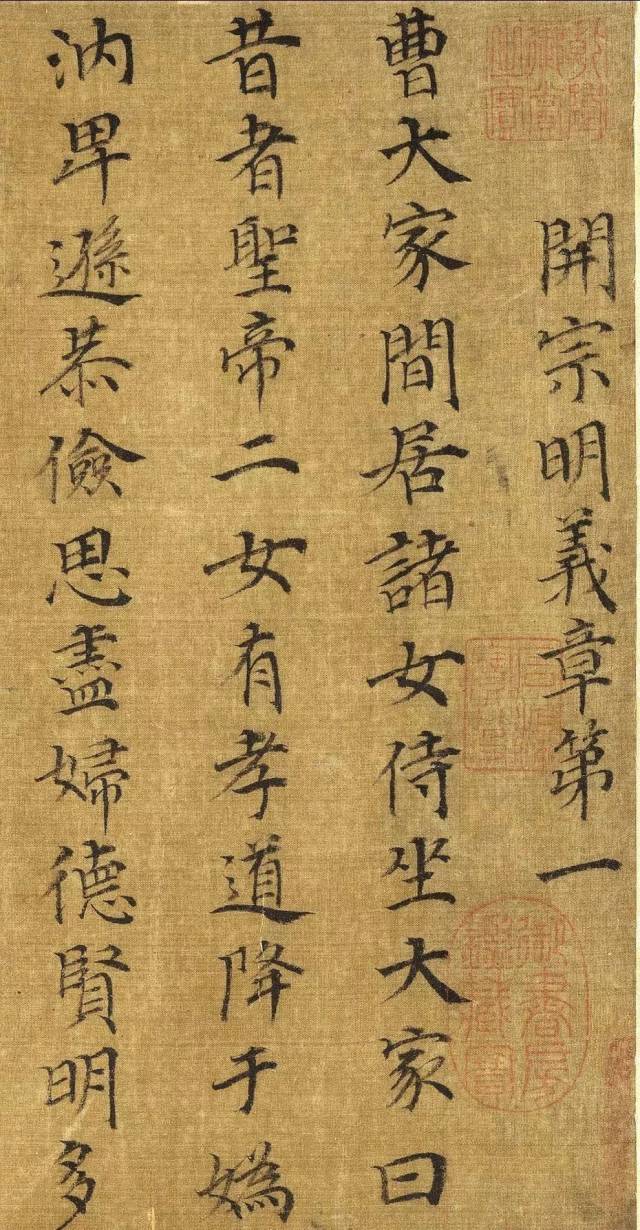 開宗明義章第一
曹大家間居諸女侍坐大家曰
昔者聖帝二女有孝道降于媯
汭卑遜恭儉思盡婦德賢明多
御書房鑒藏寶